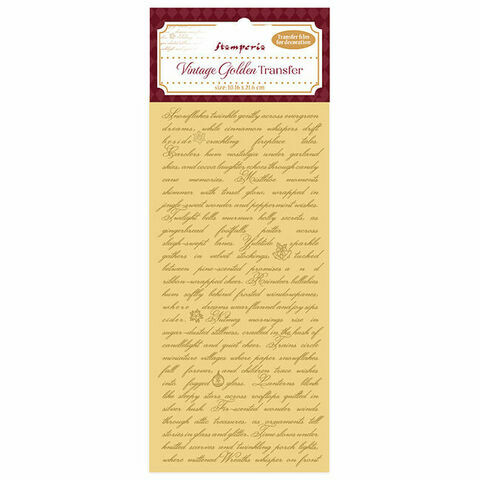 Stamperia
Transfer film
for decoration
Vintage Golden Transfer
size: 10.16 x 21.6 cm
Snowflakes twinkle gently across evergreen
dreams, while cinnamon whispers drift
beside crackling fireplace tales.
Carolers hum nostalgia under garland
skies, and cocoa laughter echoes through candy
cane memories. Mistletoe moments
shimmer with tinsel glow, wrapped in
jingle-sweet wonder and peppermint wishes.
Twilight bells murmur holly secrets, as
gingerbread footfalls patter across
sleigh-swept lanes. Yuletide sparkle
gathers in velvet stockings, tucked
between pine-scented promises and
ribbon-wrapped cheer. Reindeer lullabies
hum softly behind frosted windowpanes,
where dreams wear flannel and joy sips
cider. Nutmeg mornings rise in
sugar-dusted stillness, cradled in the hush of
candlelight and quiet cheer. Trains circle
miniature villages where paper snowflakes
fall forever, and children trace wishes
into fogged glass. Lanterns blink
like sleepy stars across rooftops quilted in
silver hush. Fir-scented wonder winds
through attic treasures, as ornaments tell
stories in glass and glitter. Time stories under
knitted scarves and twinkling porch lights,
where mittened Wreaths whisper on front